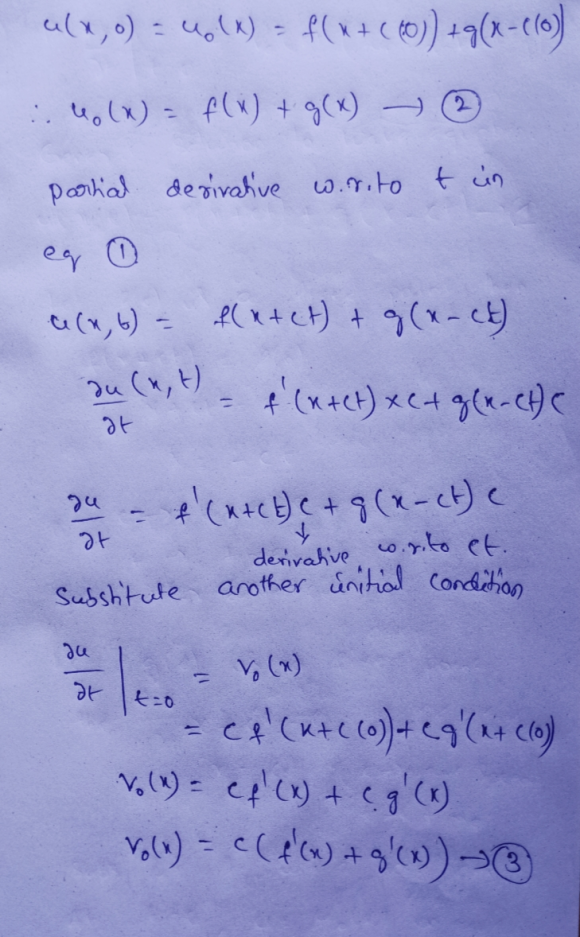 u(x,0) = u₀(x) = f(x+c(0)) + g(x-c(0))
∴ u₀(x) = f(x) + g(x) → ②
partial derivative w.r.to t in
eq ①
u(x,t) = f(x+ct) + g(x-ct)
∂u(x,t)/∂t = f'(x+ct)×c+ g(x-ct)c
∂u/∂t = f'(x+ct)c + g(x-ct) c
↓
derivative w.r.to ct.
Substitute another initial condition
∂u/∂t |t=0 = v₀(x)
= cf'(x+c(0))+cg'(x+c(0))
v₀(x) = cf'(x) + cg'(x)
v₀(x) = c(f'(x) + g'(x)) → ③